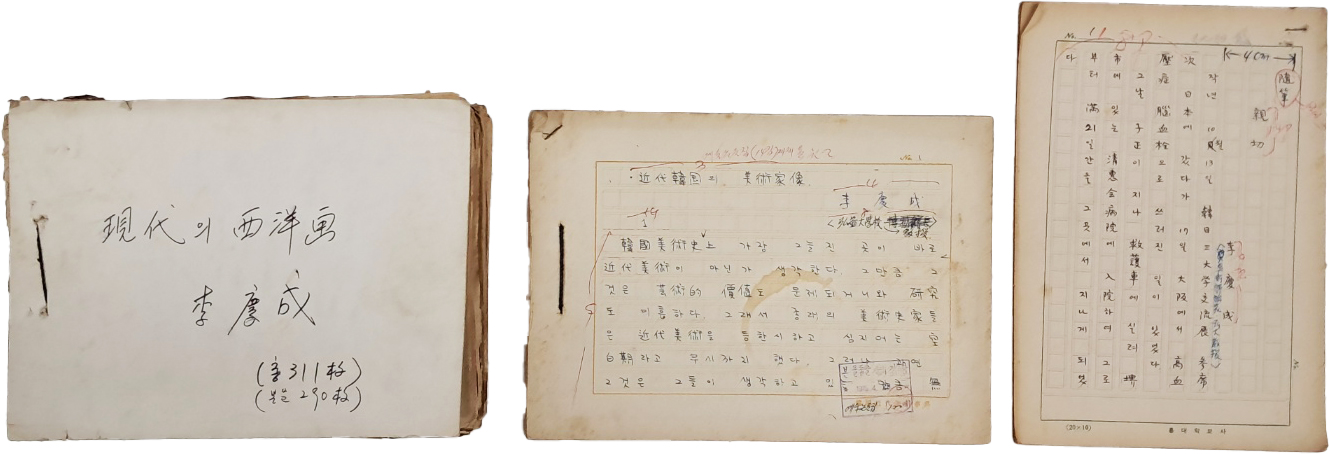 現代의 西洋画
李慶成
(총 311枚)
(본문 290枚)
No. 1
近代韓国의 美術家像
李 慶 成
<弘益大学校 教授>
韓國美術史上 가장 그늘진 곳이 바로
近代美術이 아닌가 생각한다. 그만큼 그
것은 芸術的 價値도 문제되거니와 研究
도 미흡하다. 그래서 종래의 美術史家들
은 近代美術을 등한시하고 심지어는 空
白期라고 무시까지 했다. 그러나
그것은 그들이 생각하고 無
No. 11
4cm
隨筆
親切
李慶成
작년 10月 13일 韓日三大学交流展 参席
次 日本에 갔다가 17일 大阪에서 高血
壓症 腦血栓으로 쓰러진 일이 있었다
그날 子正이 지나 救護車에 실려 堺
市에 있는 清恵会病院에 入院하여 그로
부터 満 21일간을 그곳에서 지나게 되었
다
(20×10)
홍대학보사